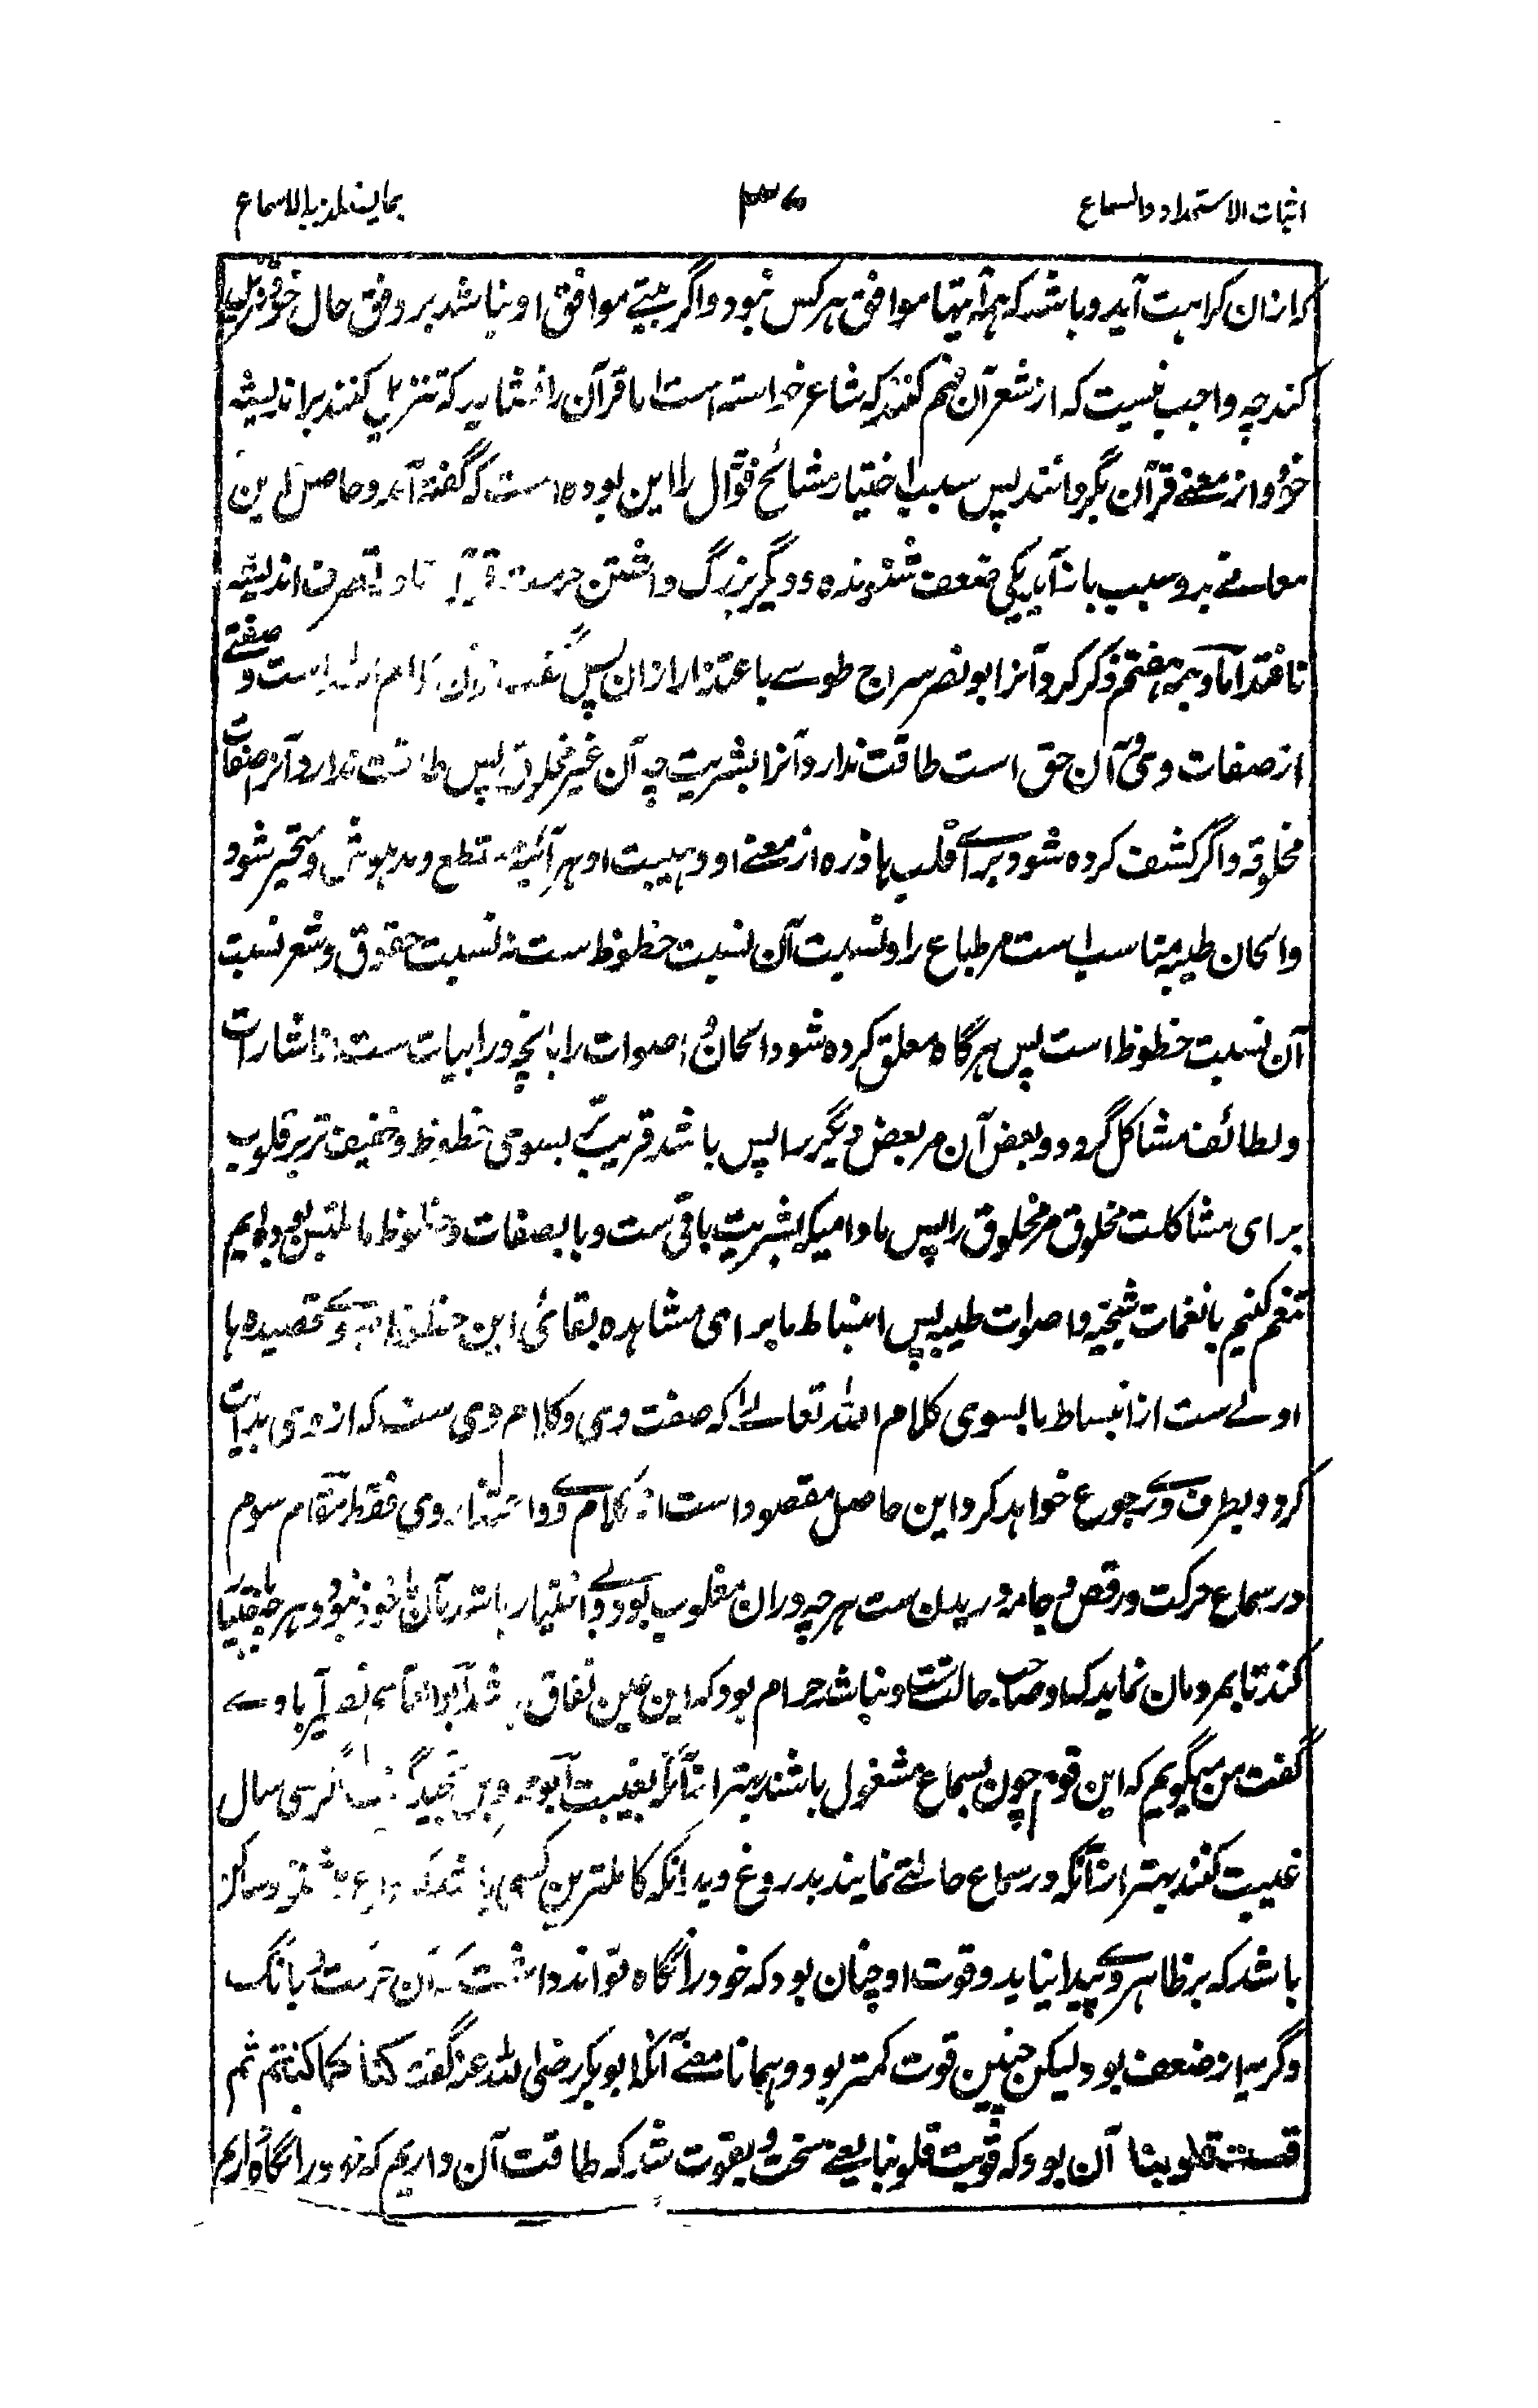 اثبات الاستمداد والسماع ۳۶ بما یتلذذ بالاسماع
که ازان کراهت آید و باشد که همه آیتها موافق هرکس نبود و اگر بیتے موافق او نباشد بر وفق حال خود تنزیل
کند چه واجب نیست که از شعر آن فهم کنند که شاعر خواسته است اما قرآن را نشاید که تنزیل کنند بر اندیشه
خود و از معنے قرآن بگردانند پس سبب اختیار مشائخ قوّال را این بوده است که گفته آمد و حاصل این
معانے بدو سبب باز آید یکی ضعف شنونده و دیگر بزرگ داشتن حرمت قرآن تا در تصرف اندیشه
نافتد اما وجه هفتم ذکر کرد آنرا ابونصر سراج طوسے باعتذار ازان پس گفت قرآن کلام الله است و صفتے
از صفات وی و آن حق است طاقت ندارد آنرا بشریت چه آن غیر مخلوق پس طاقت ندارد آنرا صفات
مخلوقه و اگر کشف کرده شود برائے قلب ها ذره از معنے او و هیبت او هر آئینه متطلع و مدهوش و متحیر شود
و الحان طیبه مناسب است مر طباع را و نسبت آن نسبت حظوظ ست نه نسبت حقوق و شعر نسبت
آن نسبت حظوظ است پس هرگاه معلق کرده شود الحان و اصوات را بانچه در ابیات ست از اشارات
و لطائف مشاکل گردد و بعض آن مر بعض دیگر را پس باشد قریب بسوی حظوظ و خفیف تر بر قلوب
برای مشاکلت مخلوق مر مخلوق را پس مادامیکه بشریت باقی ست و ما بصفات و حظوظ ما ملتبس بوده ایم
تنعم کنیم با نغمات شجیه و اصوات طیبه پس انبساط ما برای مشاهده بقائی این حظوظ بسوے قصیده ها
اولے ست از انبساط ما بسوی کلام الله تعالے که صفت وی و کلام وی ست که از وی بدایت
کرد و بطرف وے رجوع خواهد کرد این حاصل مقصود است از کلام وے و اعتذار وی فقط مقام سوم
در سماع حرکت و رقص و جامه دریدن ست هرچه دران مغلوب بود و بے اختیار باشد بآن ماخوذ نبود و هرچه باختیار
کند تا بمردمان نماید که او صاحب حالت ست و نباشد حرام بود که این عین نفاق باشد ابوالقاسم نصیرآبادے
گفت من میگویم که این قوم چون بسماع مشغول باشند بهتر ازانکه بغیبت ابوعمرو بن نجید گفت اگر سی سال
غیبت کنند بهتر ازانکه در سماع حالتے نمایند بدروغ و بدانکه کاملترین کسی باشد که سماع می شنود و ساکن
باشد که بر ظاهر وے پیدا نیاید و قوت او چنان بود که خود را نگاه تواند داشت که آن حرکت و بانگ
و گریه از ضعف بود ولیکن چنین قوت کمتر بود و همانا معنے آنکه ابوبکر رضی الله عنه گفت کنا کما کنتم ثم
قست قلوبنا آن بود که قویت قلوبنا یعنے سخت و بقوت شد که طاقت آن داریم که خود را نگاه داریم